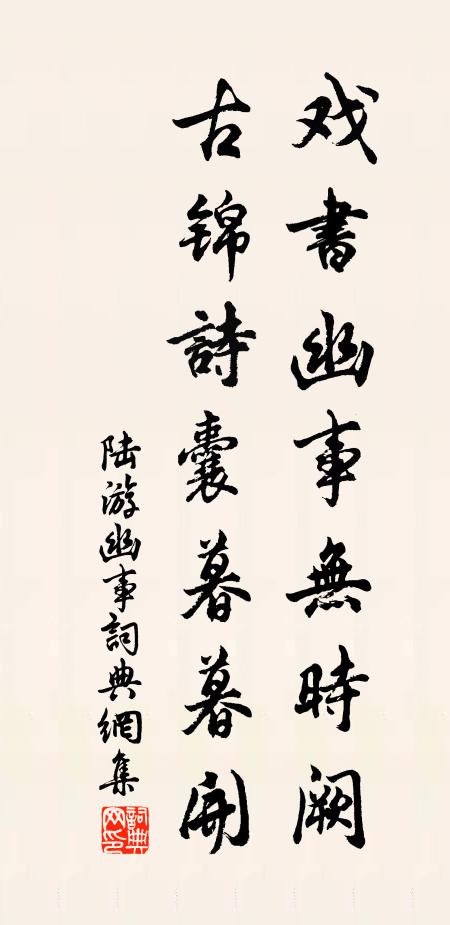 戏書幽事無時闕
古锦詩囊暮暮開
陆游幽事詞典網集
詞典
网印